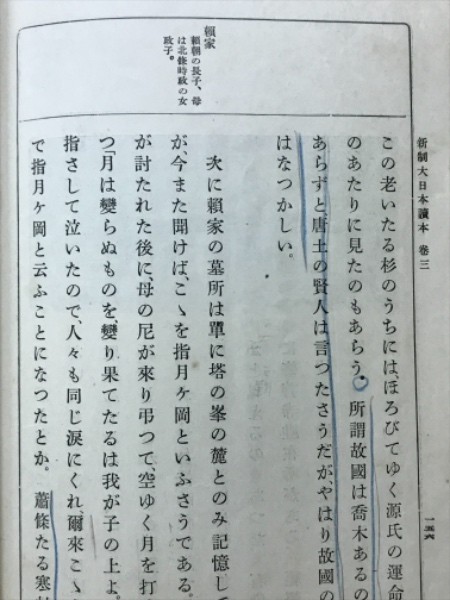 新制大日本讀本 卷三
一五六
賴家
賴朝の長子、母
は北條時政の女
政子。
この老いたる杉のうちには、ほろびてゆく源氏の運命
のあたりに見たのもあらう。所謂故國は喬木あるの
あらずと、唐土の賢人は言つたさうだが、やはり故國の
はなつかしい。
次に賴家の墓所は單に塔の峯の麓とのみ記憶して
が、今また聞けば、こゝを指月ケ岡といふさうである。
が討たれた後に、母の尼が來り弔つて、空ゆく月を打
つ「月は變らぬものを、變り果てたるは我が子の上よ。
指さして泣いたので、人々も同じ淚にくれ、爾來こゝ
で指月ケ岡と云ふことになつたとか。蕭條たる寒村